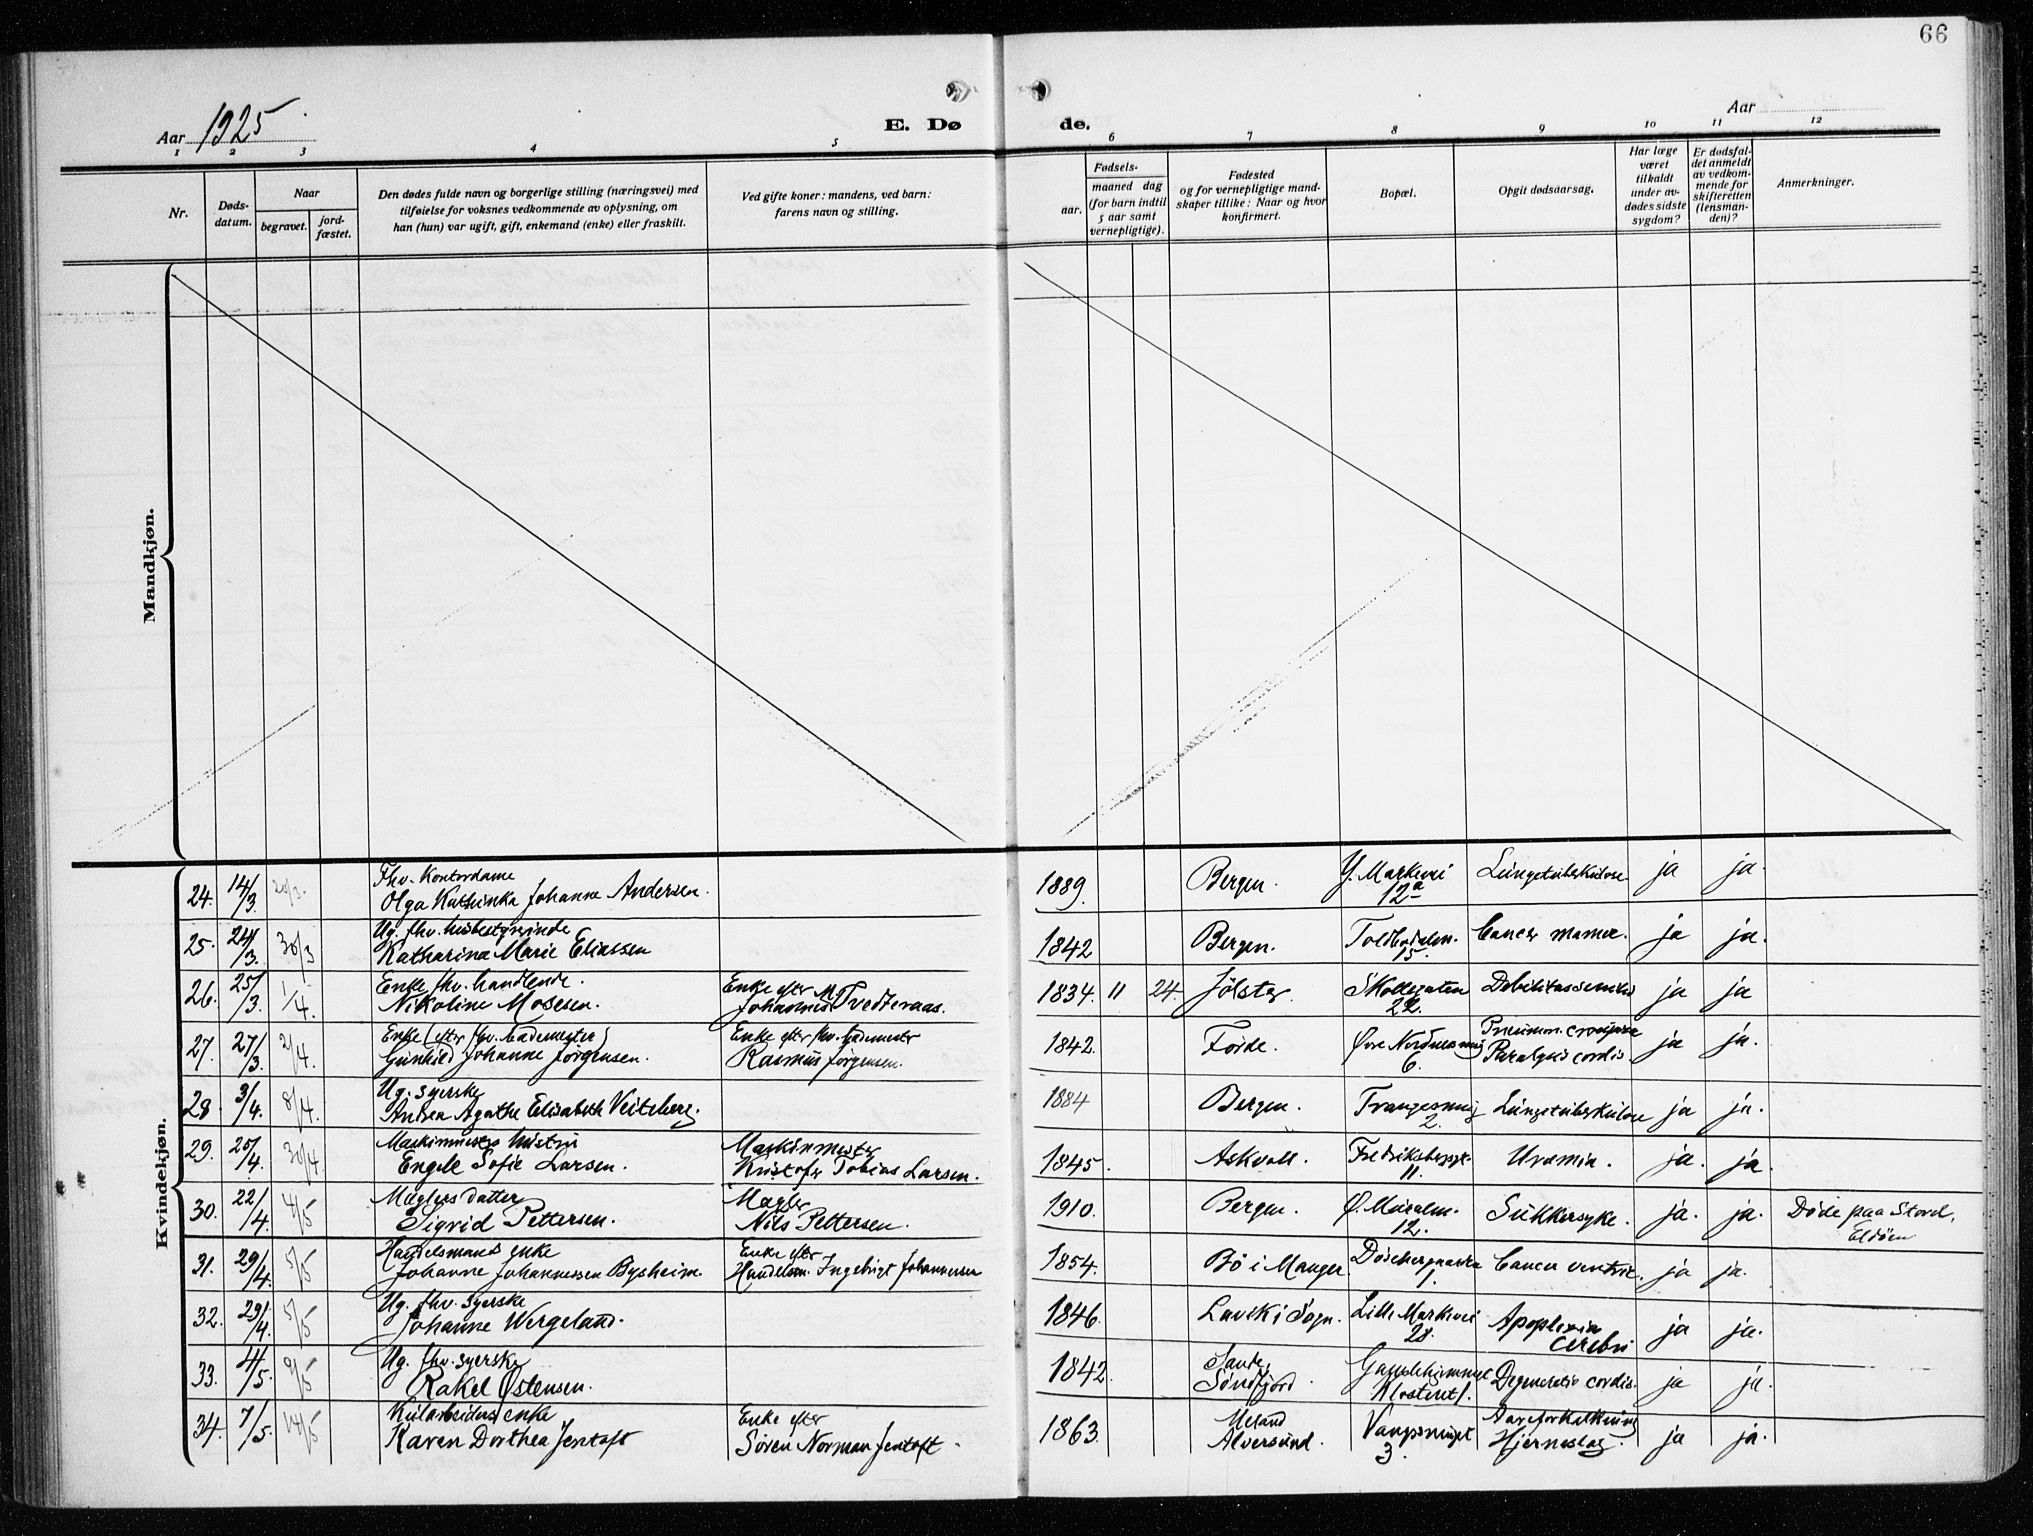 66
Aar 1925
E. Dø
de.
Aar
1 2 3 4 5 6 7 8 9 10 11 12
Nr.
Døds-
datum.
Naar
begravet.
jord-
fæstet.
Den dødes fulde navn og borgerlige stilling (næringsvei) med
tilføielse for voksnes vedkommende av oplysning, om
han (hun) var ugift, gift, enkemand (enke) eller fraskilt.
Ved gifte koner: mandens, ved barn:
farens navn og stilling.
Fødsels-
aar.
maaned dag
(for barn indtil
5 aar samt
vernepligtige).
Fødested
og for vernepligtige mand-
skaper tillike: Naar og hvor
konfirmert.
Bopæl.
Opgit dødsaarsag.
Har læge
været
tilkaldt
under av-
dødes sidste
sygdom?
Er dødsfal-
det anmeldt
av vedkom-
mende for
skifteretten
(lensman-
den)?
Anmerkninger.
Mandkjøn.
Kvindekjøn.
24. 14/3. 20/3. Fhv. Kontordame
Olga Kathinka Johanne Andersen. 1889. Bergen. Y. Markevei 12a Lungetuberkulose ja ja.
25. 24/3. 30/3 Ug. fhv. husbestyrerinde
Katharina Marie Eliassen 1842 Bergen. Toldbodalm. 15. Cancer mamae. ja ja.
26. 25/3. 1/4. Enke fhv. handlende.
Nikoline Mosesen. Enke efter
Johannes M. Tvedteraas. 1834. 11 24. Jølster. Skottegaten 22. Debilitas senilis ja ja
27. 27/3. 2/4. Enke (efter fhv. bademester)
Gunhild Johanne Jørgensen. Enke efter fhv. bademester
Rasmus Jørgensen. 1842. Førde. Øvre Nordnesmug 6. Pneumon. crouposa
Paralysis cordis ja ja.
28. 3/4. 8/4. Ug. syerske
Andrea Agathe Elisabeth Veiteberg. 1884 Bergen. Trangesmug 2. Lungetuberkulose ja ja.
29. 25/4. 30/4. Maskinmesters hustru
Engele Sofie Larsen. Maskinmester
Kristofer Tobias Larsen. 1845. Askvoll. Fredriksbergsgt. 11. Uræmia. ja. ja.
30. 22/4. 4/5 Mæglers datter
Sigrid Pettersen. Mægler
Nils Pettersen. 1910. Bergen. Ø. Muralm. 12. Sukkersyke. ja. ja. Døde paa Stord,
Eldøen
31. 29/4. 5/5 Handelsmands enke
Johanne Johannessen Bysheim. Enke efter
Handelsm. Ingebrigt Johannessen 1854. Bø i Manger. 1. Cancer ventric. ja ja.
32. 29/4. 5/5 Ug. fhv. syerske
Johanne Wergeland. 1846. Lavik i Sogn. Lille Markevei 28. Apoplexia
cerebri ja ja.
33. 4/5. 9/5 Ug. fhv. syerske
Rakel Østensen. 1842. Sande,
Søndfjord. Gamlehjemmet
Klosteret 1. Degeneratio cordis. ja ja.
34. 7/5. 14/5 Kularbeiders enke
Karen Dorthea Jentoft Enke efter
Søren Norman Jentoft. 1863. Meland
Alversund. Vangsmuget 3. Aareforkalkning
Hjerneslag. ja ja.